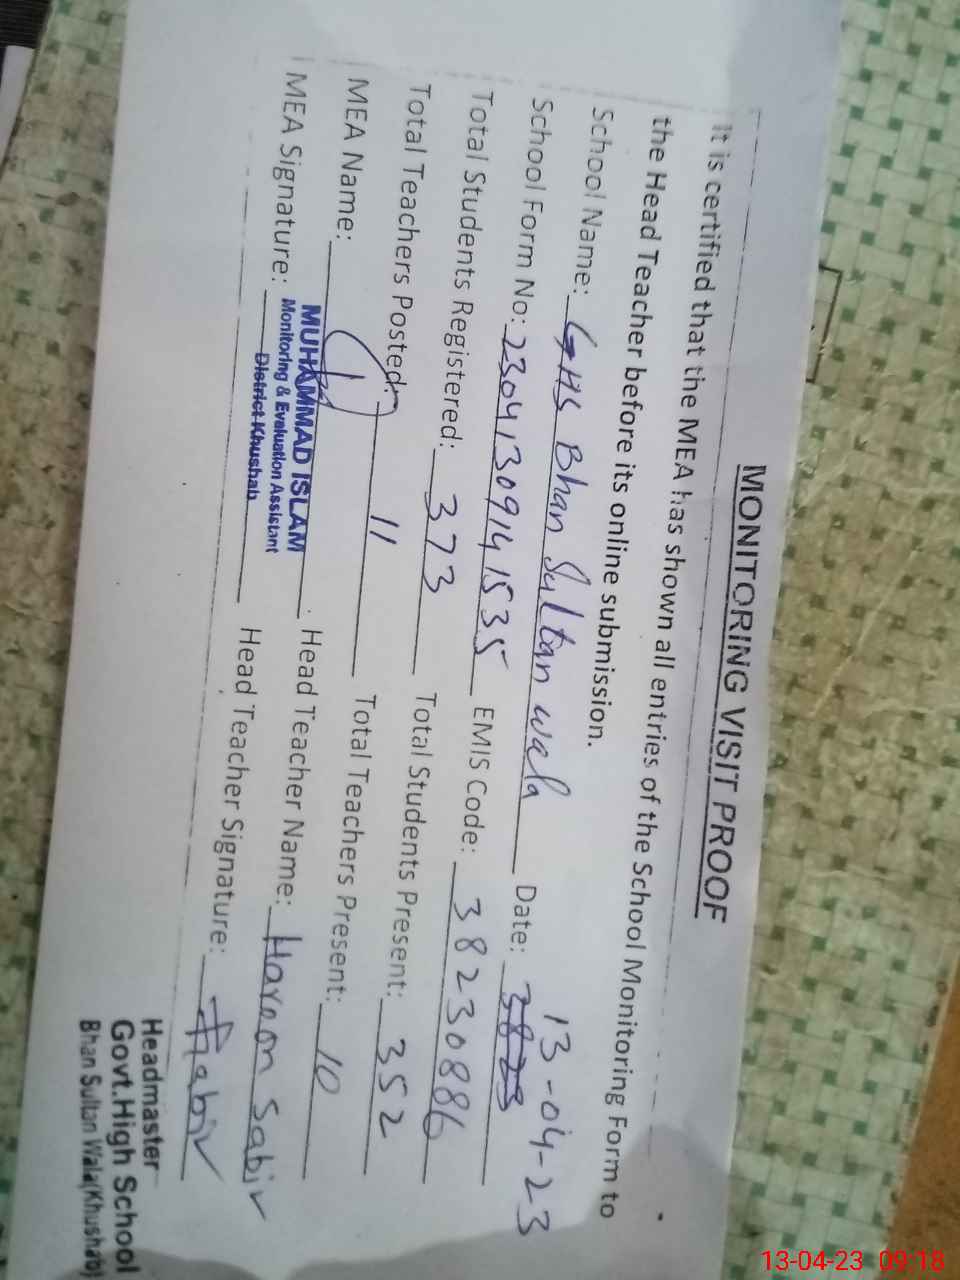 MONITORING VISIT PROOF
It is certified that the MEA has shown all entries of the School Monitoring Form to
the Head Teacher before its online submission.
School Name: GHS Bhan Sultan wala Date: 3823 13-04-23
School Form No: 23041309141535 EMIS Code: 38230886
Total Students Registered: 373 Total Students Present: 352
Total Teachers Posted: 11 Total Teachers Present: 10
MEA Name: MUHAMMAD ISLAM Head Teacher Name: Haroon Sabir
Monitoring & Evaluation Assistant
MEA Signature: District Khushab Head Teacher Signature: HSabir
Headmaster
Govt.High School
Bhan Sultan Wala(Khushab)
13-04-23 09:18